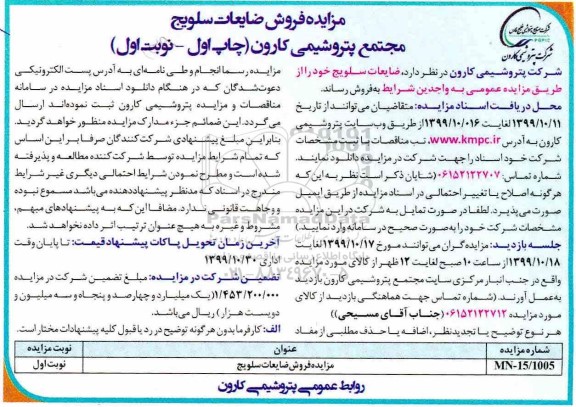 مزایده فروش ضایعات سلویج
مجتمع پتروشیمی کارون (چاپ اول - نوبت اول)
شرکت پتروشیمی کارون
شرکت پتروشیمی کارون در نظر دارد، ضایعات سلویج خود را از
طریق مزایده عمومی به واجدین شرایط به فروش رساند.
محل دریافت اسناد مزایده: متقاضیان می توانند از تاریخ
۱۳۹۹/۱۰/۱۱ لغایت ۱۳۹۹/۱۰/۰۱۶ از طریق وب سایت پتروشیمی
کارون به آدرس www.kmpc.ir، تب مناقصات یا مشخصات
شرکت خود اسناد را جهت شرکت در مزایده دانلود نمایند.
شماره تماس: ۰۶۱۵۲۱۲۲۷۰۷ (شایان ذکر است نظر به این که
هر گونه اصلاح یا تغییر احتمالی در اسناد مزایده از طریق ایمیل
صورت می پذیرد. لطفا در صورت تمایل به شرکت در این مزایده
مشخصات شرکت خود را به صورت صحیح در سامانه وارد نمایید)
جلسه بازدید: مزایده گران می توانند مورخ ۱۳۹۹/۱۰/۱۷ لغایت
۱۳۹۹/۱۰/۱۸ از ساعت ۱۰ صبح لغایت ۱۲ ظهر از کالای مورد مزایده
واقع در جنب انبار مرکزی سایت مجتمع پتروشیمی کارون بازدید
به عمل آورند. (شماره تماس جهت هماهنگی بازدید از کالای
مورد مزایده ۰۶۱۵۲۱۲۲۷۱۲ (جناب آقای مسیحی))
هر نوع توضیح یا تجدیدنظر، اضافه یا حذف مطلبی از مفاد
مزایده رسما انجام و طی نامه ای به آدرس پست الکترونیکی
دعوت شدگان که در هنگام دانلود اسناد مزایده در سامانه
مناقصات و مزایده پتروشیمی کارون ثبت نموده اند ارسال
می گردد. این ضمائم جزء مدارک مزایده منظور خواهد گردید.
بنابراین مبلغ پیشنهادی شرکت کنندگان صرفا بر این اساس
که تمام شرایط مزایده توسط شرکت کننده مطالعه و پذیرفته
شده است و مطرح نمودن شرایط احتمالی دیگری غیر شرایط
مندرج در اسناد که مدنظر پیشنهاددهنده می باشد مسموع نبوده
و وجاهت قانونی ندارد. مضافا این که به پیشنهادهای مبهم،
مشروط و غیره به هیچ عنوان ترتیب اثر داده نخواهد شد.
آخرین زمان تحویل پاکات پیشنهاد قیمت: تا پایان وقت
اداری ۱۳۹۹/۱۰/۳۰
تضمین شرکت در مزایده: مبلغ تضمین شرکت در مزایده
۱/۴۵۳/۲۰۰/۰۰۰ (یک میلیارد و چهارصد و پنجاه و سه میلیون و
دویست هزار) ریال می باشد.
الف: کارفرما بدون هر گونه توضیح در رد یا قبول کلیه پیشنهادات مختار است.
شماره مزایده عنوان نوبت مزایده
MN-15/1005 مزایده فروش ضایعات سلویج نوبت اول
روابط عمومی پتروشیمی کارون
ParsNamadData
۰۲۱-۸۸۳۴۹۶۷۰-۵